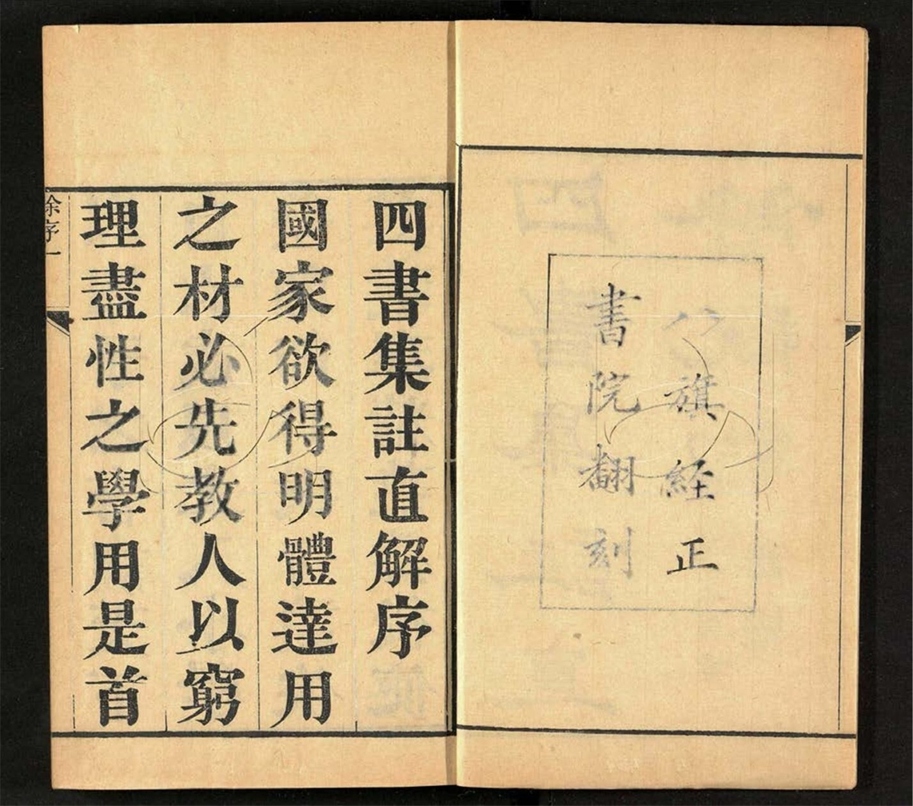 八旗経正
書院翻刻
四書集註直解序
國家欲得明體達用
之材必先教人以窮
理盡性之學用是首
徐序一